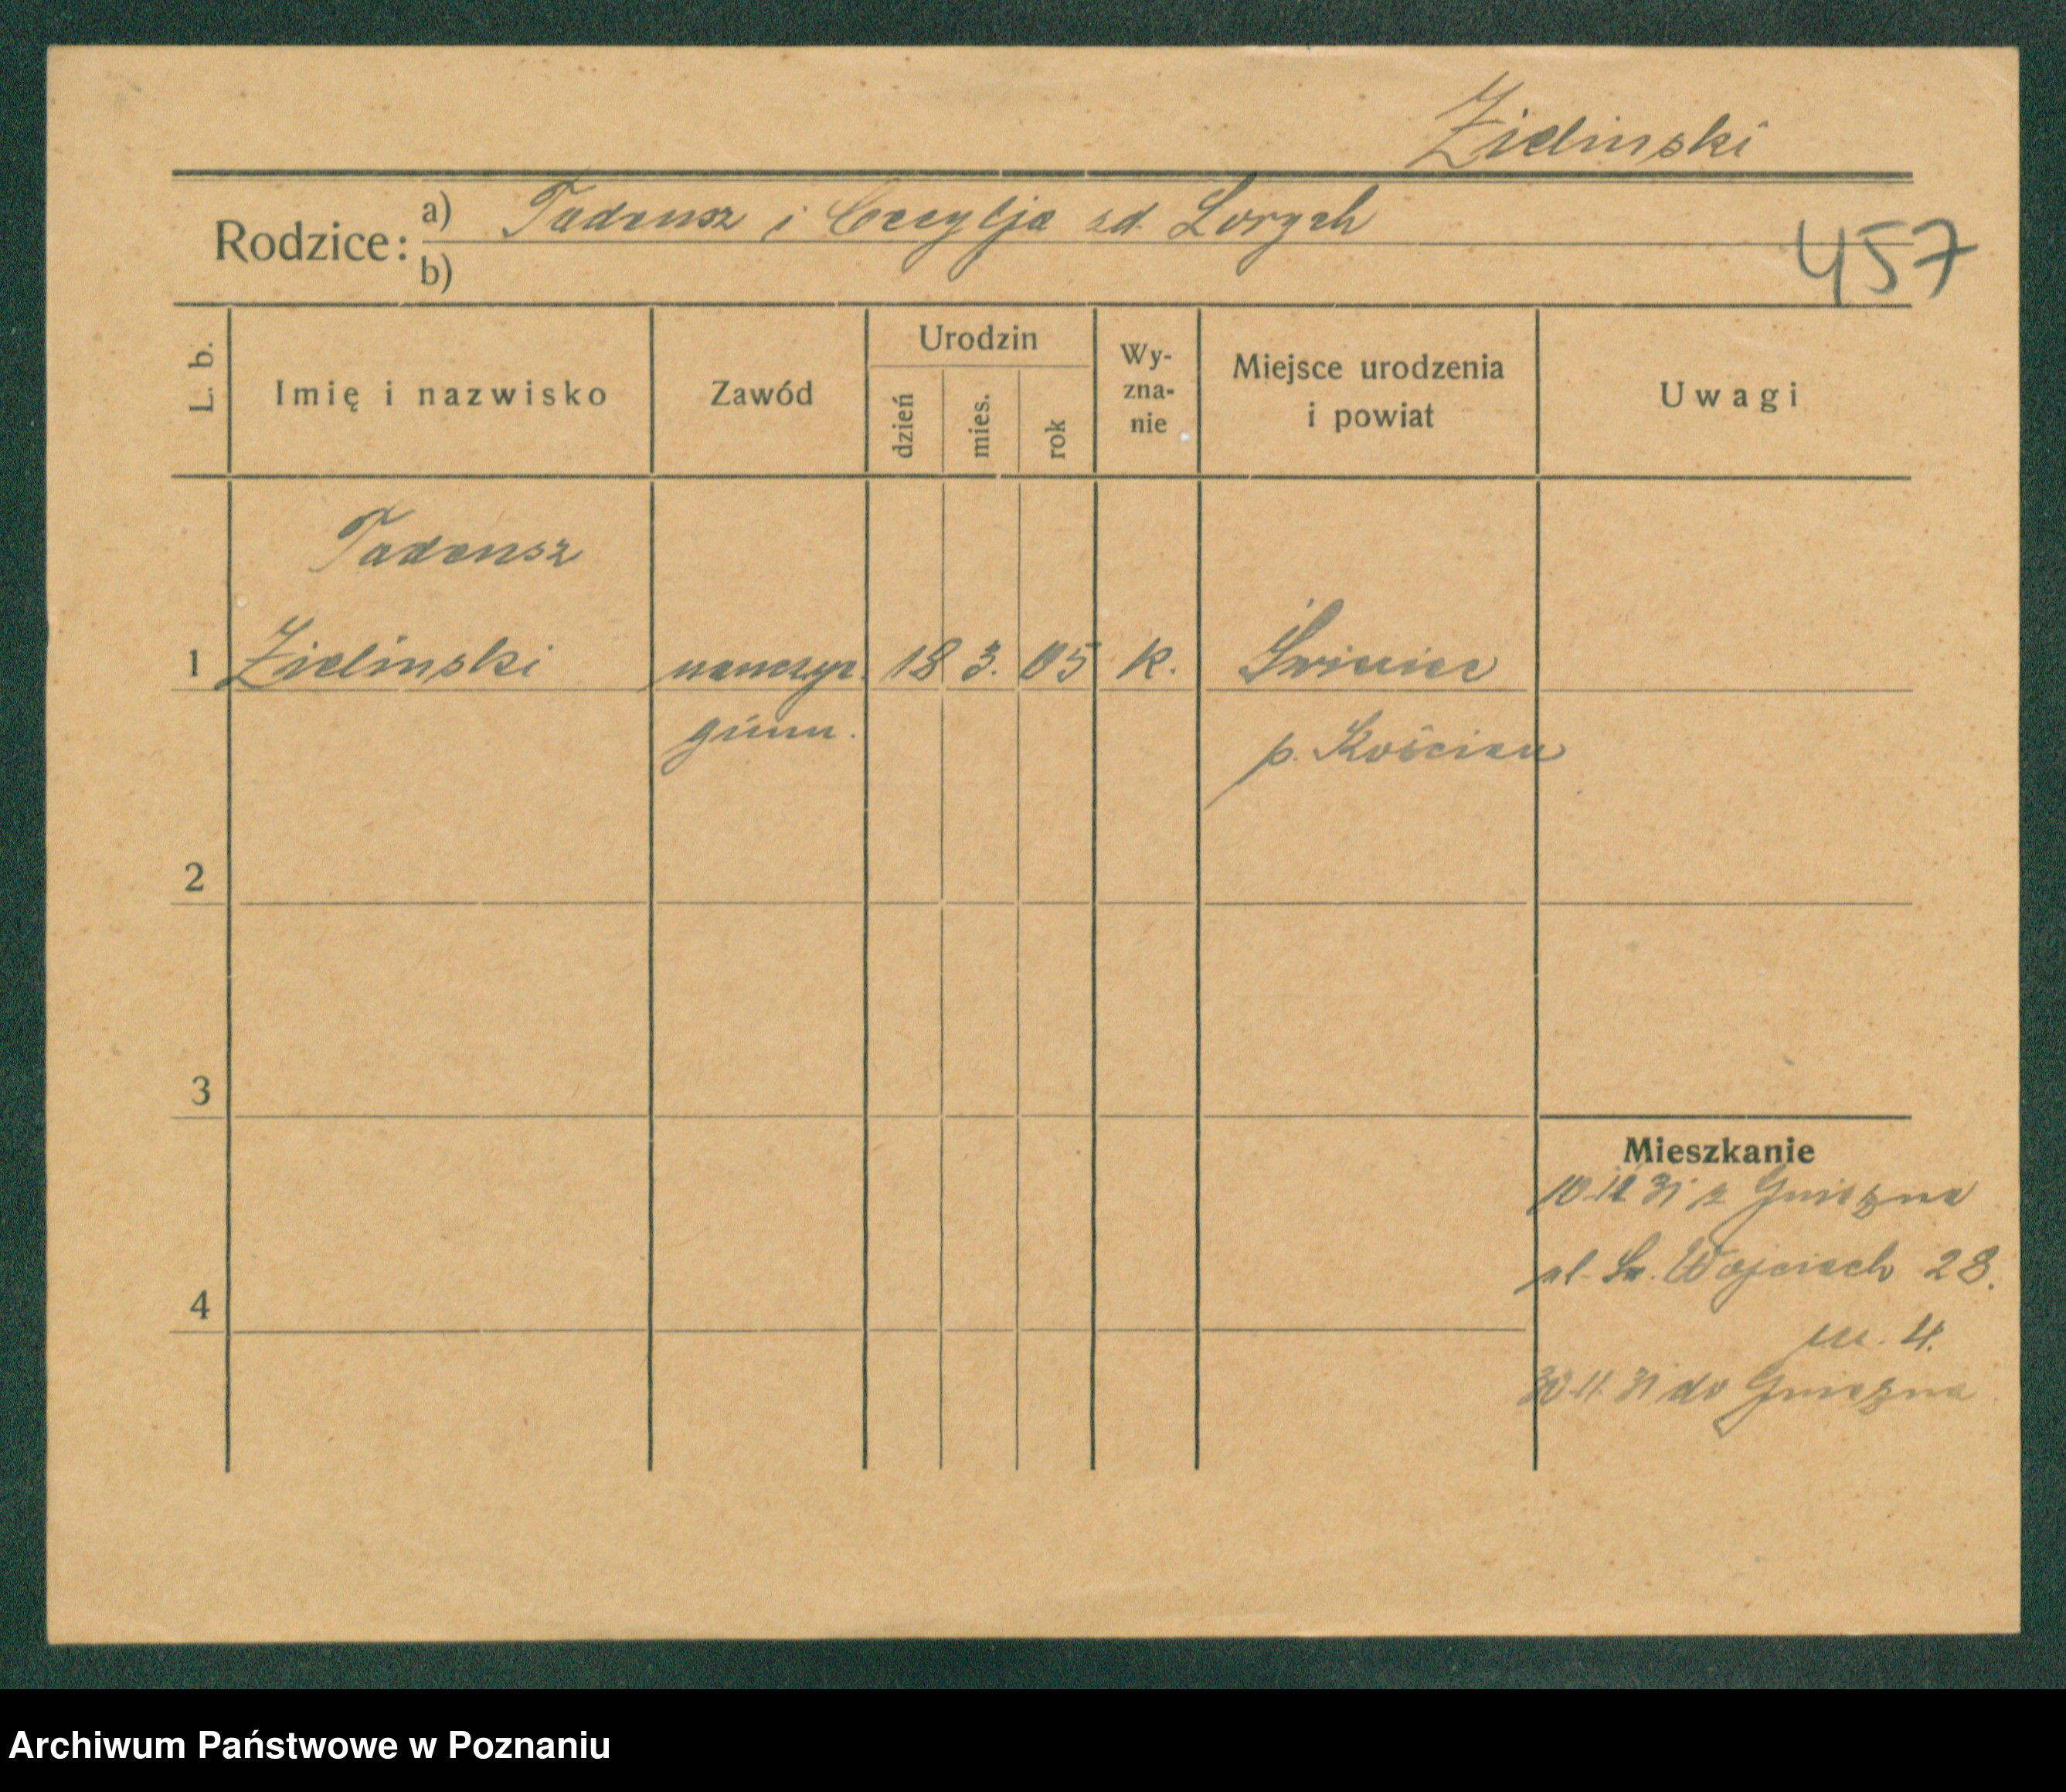 Zielinski
Rodzice: a) Tadeusz i Cecylja zd. Lorych
b)
457
L. b.
Imię i nazwisko
Zawód
Urodzin
dzień
mies.
rok
Wy-
zna-
nie
Miejsce urodzenia
i powiat
Uwagi
Tadeusz
1 Zielinski nauczyc. 18 3. 05 k.
gimn. p. Kościan
2
3
Mieszkanie
10.11 31 z Gniezna
ul. Św. Wojciech 28.
4
m. 4.
30.11 31 do Gniezna
Archiwum Państwowe w Poznaniu